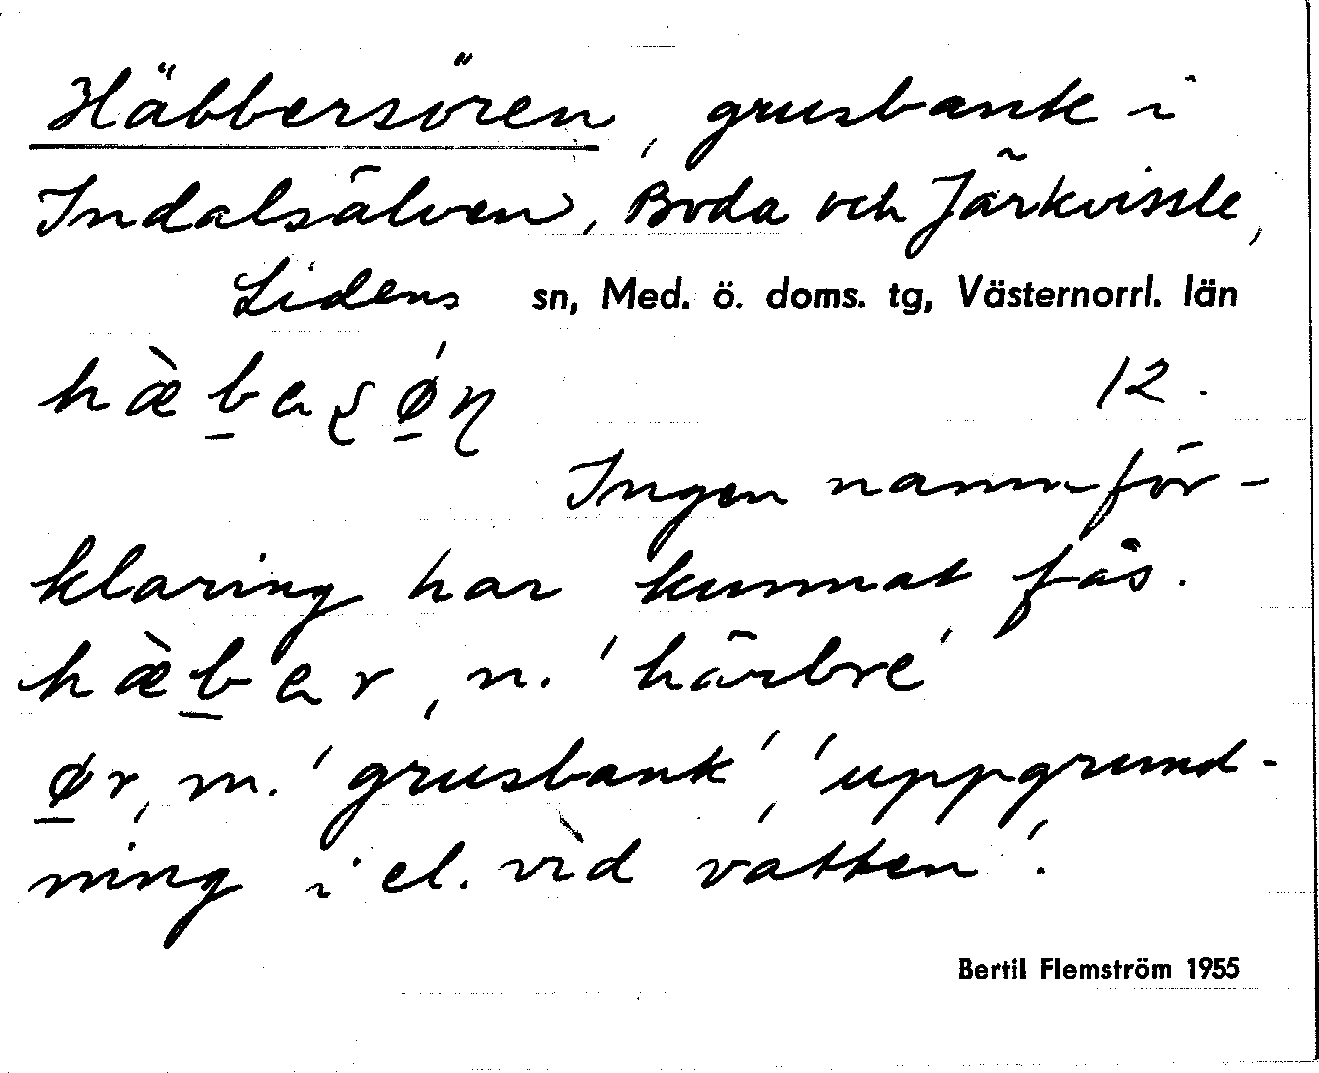 Häbbersören, grusbank i
Indalsälven, Boda och Järkvissle,
Lidens sn, Med. ö. doms. tg, Västernorrl. län
hæ̀b̲eʂǿ̲ɳ 12.
Ingen namnför-
klaring har kunnat fås.
hæ̀b̲er, n. 'härbre'
ø̲r, m. 'grusbank', 'uppgrund-
ning i el. vid vatten'.
Bertil Flemström 1955